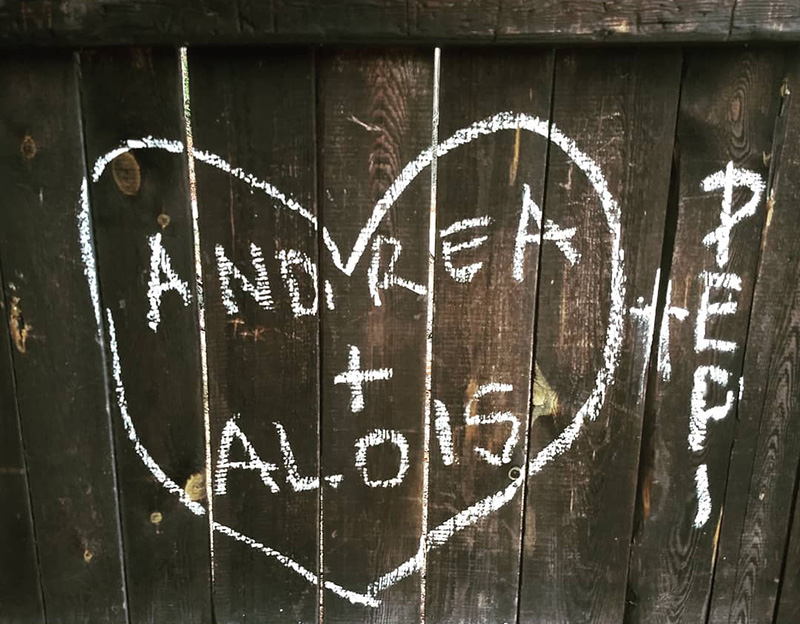 ANDREA
+
ALOIS
+ PEPI